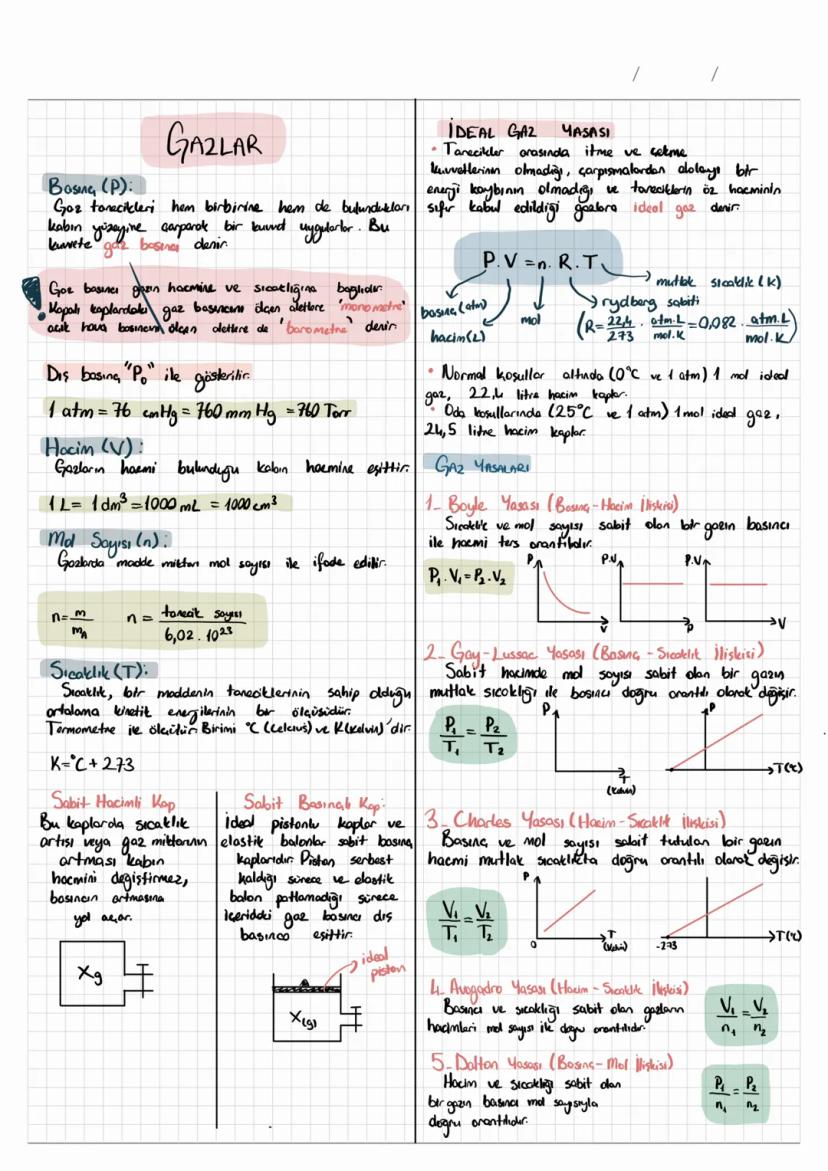 / /
GAZLAR
Basınç (P):
Gaz tanecikleri hem birbirine hem de bulundukları
kabın yüzeyine çarparak bir kuvvet uygularlar. Bu
kuvvete gaz basıncı denir.
! Gaz basıncı gazın hacmine ve sıcaklığına bağlıdır.
Kapalı kaplardaki gaz basıncını ölçen aletlere 'manometre'
açık hava basıncını ölçen aletlere de 'barometre' denir.
Dış basınç "P₀" ile gösterilir.
1 atm = 76 cmHg = 760 mm Hg = 760 Torr
Hacim (V):
Gazların hacmi bulunduğu kabın hacmine eşittir.
1 L = 1 dm³ = 1000 mL = 1000 cm³
Mol Sayısı (n):
Gazlarda madde miktarı mol sayısı ile ifade edilir.
n = m/mA n = tanecik sayısı / 6,02 . 10²³
Sıcaklık (T):
Sıcaklık, bir maddenin taneciklerinin sahip olduğu
ortalama kinetik energilerinin bir ölçüsüdür.
Termometre ile ölçülür. Birimi °C (Celcius) ve K(Kelvin)'dir.
K = °C + 273
Sabit Hacimli Kap
Bu kaplarda sıcaklık
artışı veya gaz miktarının
artması kabın
hacmini değiştirmez,
basıncın artmasına
yol açar.
Xg
Sabit Basınçlı Kap:
İdeal pistonlu kaplar ve
elastik balonlar sabit basınç
kaplarıdır. Piston serbest
kaldığı sürece ve elastik
balon patlamadığı sürece
içerideki gaz basıncı dış
basınca eşittir.
ideal
piston
X(g)
İDEAL GAZ YASASI
• Tanecikler arasında itme ve çekme
kuvvetlerinin olmadığı, çarpışmalardan dolayı bir
enerji kaybının olmadığı ve taneciklerin öz hacminin
sıfır kabul edildiği gazlara ideal gaz denir.
P.V = n.R.T
mutlak sıcaklık (K)
basınç (atm)
rydberg sabiti
mol
hacim (L)
(R = 22,4/273 . atm.L/mol.K = 0,082 . atm.L/mol.K)
• Normal koşullar altında (0°C ve 1 atm) 1 mol ideal
gaz, 22,4 litre hacim kaplar.
• Oda koşullarında (25°C ve 1 atm) 1 mol ideal gaz,
24,5 litre hacim kaplar.
GAZ YASALARI
1- Boyle Yasası (Basınç-Hacim İlişkisi)
Sıcaklık ve mol sayısı sabit olan bir gazın basıncı
ile hacmi ters orantılıdır.
P₁.V₁ = P₂.V₂
P V
P.V P
P.V V
2- Gay-Lussac Yasası (Basınç - Sıcaklık İlişkisi)
Sabit hacimde mol sayısı sabit olan bir gazın
mutlak sıcaklığı ile basıncı doğru orantılı olarak değişir.
P₁/T₁ = P₂/T₂
P T (Kelvin)
P T(°C)
3- Charles Yasası (Hacim-Sıcaklık İlişkisi)
Basınç ve mol sayısı sabit tutulan bir gazın
hacmi mutlak sıcaklıkta doğru orantılı olarak değişir.
V₁/T₁ = V₂/T₂
P 0 T (Kelvin)
-273 T(°C)
4- Avogadro Yasası (Hacim - Sıcaklık İlişkisi)
Basıncı ve sıcaklığı sabit olan gazların
hacimleri mol sayısı ile doğru orantılıdır.
V₁/n₁ = V₂/n₂
5- Dalton Yasası (Basınç-Mol İlişkisi)
Hacim ve sıcaklığı sabit olan
bir gazın basıncı mol sayısıyla
doğru orantılıdır.
P₁/n₁ = P₂/n₂